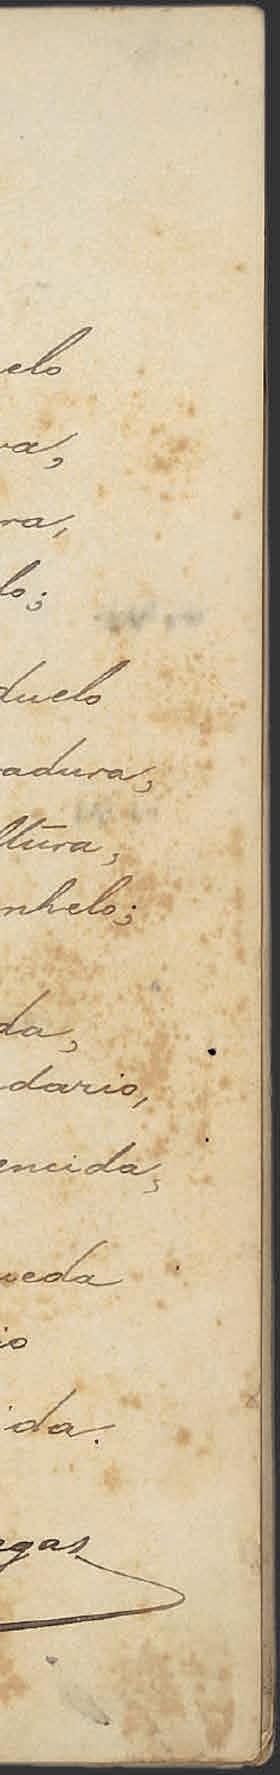 elo
ra,
ra,
lo;
duelo
adura,
ltura,
nhelo;
da,
dario,
encida,
ueda
io
ida.
egas